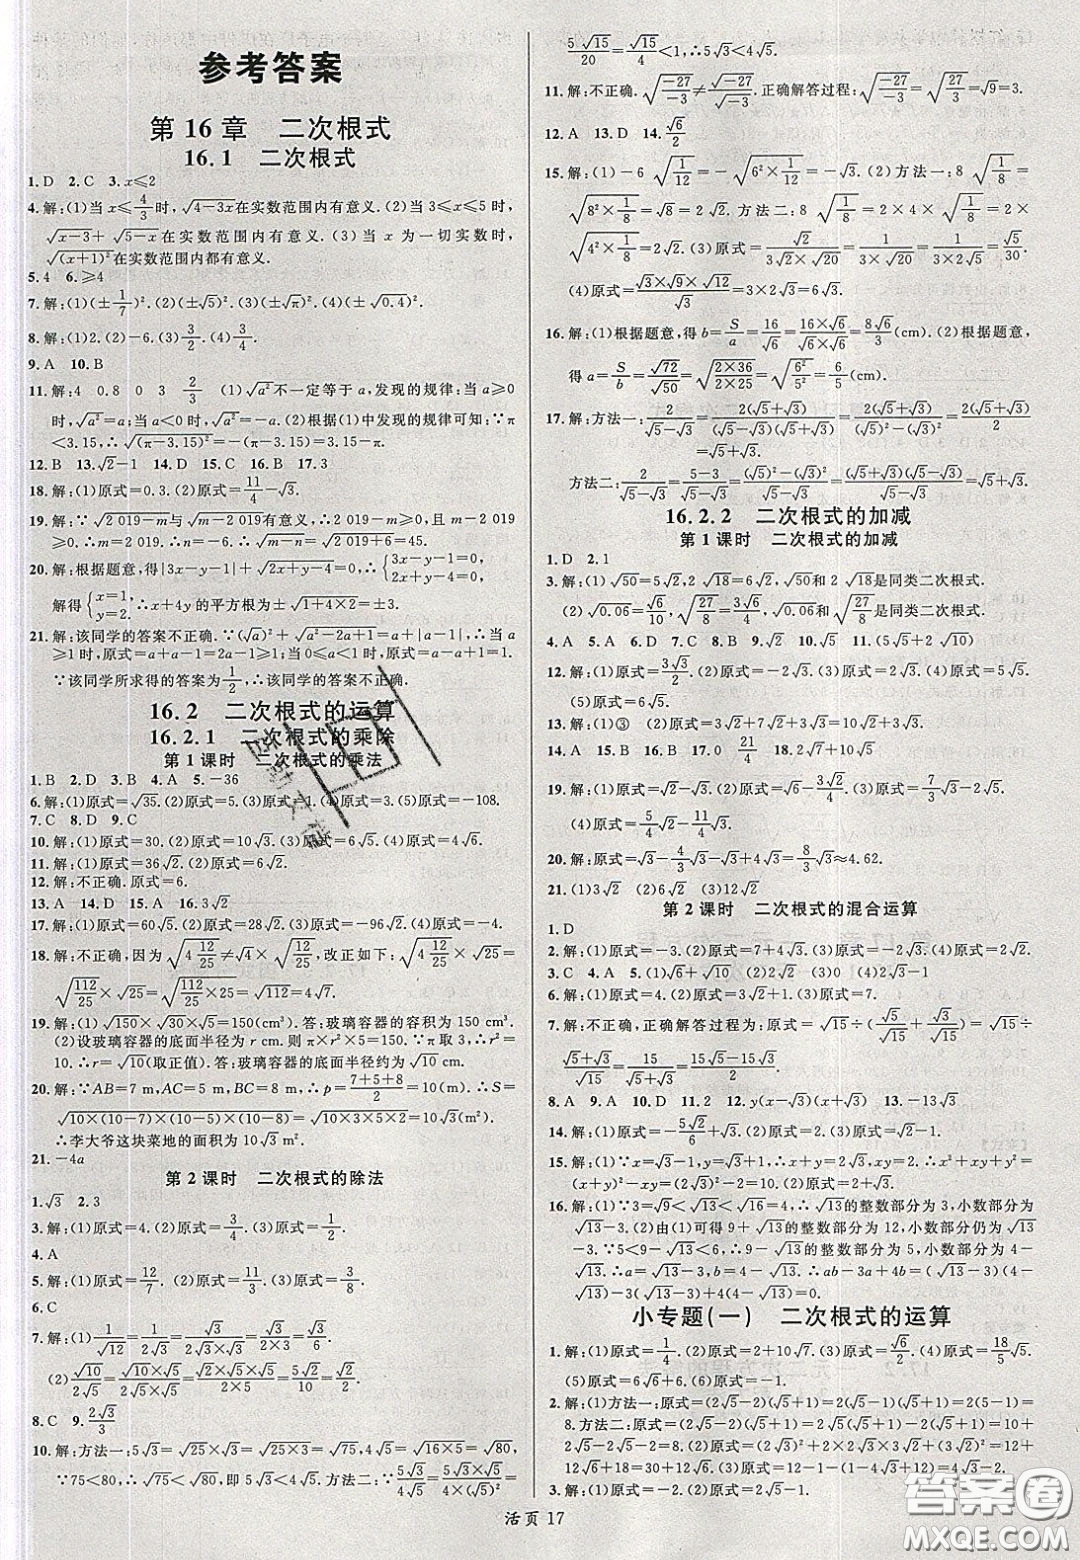 参考答案
第16章 二次根式
16.1 二次根式
1.D 2.C 3.x≤2
4.解:(1)当x≤4/3时,√(4-3x)在实数范围内有意义.(2)当3≤x≤5时,
√(x-3)+√(5-x)在实数范围内有意义.(3)当x为一切实数时,
√((x+1)²)在实数范围内都有意义.
5.4 6.≥4
7.解:(1)(±1/7)².(2)(±√5)².(3)(±√π)².(4)(±√0.4)².
8.解:(1)2.(2)-6.(3)3/2.(4)3/4.
9.A 10.B
11.解:4 0.8 0 3 3/2 (1)√a²不一定等于a,发现的规律:当a≥0
时,√a²=a;当a<0时,√a²=-a.(2)根据(1)中发现的规律可知:∵π
<3.15,∴√((π-3.15)²)=3.15-π.
12.B 13.√2-1 14.D 15.C 16.B 17.3
18.解:(1)原式=0.3.(2)原式=11/4-√3.
19.解:∵√(2 019-m)与√(m-2 019)有意义,∴2 019-m≥0,且m-2
019≥0.∴m=2 019,n=0.∴√(m-n)=√2 019.
20.解:根据题意,得|3x-y-1|+√(2x+y-4)=0.∴{3x-y-1=0, 2x+y-4=0.
解得{x=1, y=2.∴x+4y的平方根为±√(1+4×2)=±3.
21.解:该同学的答案不正确.∵(√a)²+√(a²-2a+1)=a+|a-1|,∴当a
≥1时,原式=a+a-1=2a-1;当0≤a<1时,原式=a-a+1=1.
∵该同学所求得的答案为1/2,∴该同学的答案不正确.
16.2 二次根式的运算
16.2.1 二次根式的乘除
第1课时 二次根式的乘法
1.B 2.D 3.B 4.A 5.-36
6.解:(1)原式=√35.(2)原式=2.(3)原式=1.(4)原式=3.(5)原式=-108.
7.C 8.D 9.C
10.解:(1)原式=30.(2)原式=10√3.(3)原式=6√2.(4)原式=4√3.
11.解:(1)原式=36√2.(2)原式=6√2.
12.解:不正确.原式=6.
13.A 14.D 15.A 16.3√2
17.解:(1)原式=60√5.(2)原式=28√2.(3)原式=-96√2.(4)原式=-4.
18.解:不正确.∵√(4 12/25)≠4√(12/25),∴不正确,改正如下:√(4 12/25)×√25=
√(112/25)×√25=√(112/25×25)=√112=4√7.
19.解:(1)√150×√30×√5=150(cm³).答:玻璃容器的容积为150 cm³.
(2)设玻璃容器的底面半径为r cm.则π×r²×5=150.∵π取3,∴r²=
10.∴r=√10(取正值).答:玻璃容器的底面半径约为√10 cm.
20.解:∵AB=7 m,AC=5 m,BC=8 m,∴p=(7+5+8)/2=10(m).∴S=
√(10×(10-7)×(10-5)×(10-8))=√(10×3×5×2)=10√3(m²).
∴李大爷这块菜地的面积为10√3 m².
21.-4a
第2课时 二次根式的除法
1.√3 2.3
3.解:(1)原式=4.(2)原式=√3/4.(3)原式=1/4.
4.A
5.解:(1)原式=12/7.(2)原式=11/3.(3)原式=3/8.
6.C
7.解:(1)1/√12=1/(2√3)=√3/(2√3×√3)=√3/(2×3)=√3/6.
(2)√10/(2√5)=(√10×√5)/(2√5×√5)=(√2×5×5)/(2×5)=(5×√2)/(2×5)=√2/2.
8.C 9.2√3/3
10.解:方法一:5√3=√25×√3=√(25×3)=√75,4√5=√(16×5)=√80,
∵75<80,∴√75<√80,即5√3<4√5.方法二:∵5√3/4√5=(5√3×√5)/(4√5×√5)=
5√15/20=√15/4<1,∴5√3<4√5.
11.解:不正确.√(-27/-3)≠√-27/√-3.正确解答过程:√(-27/-3)=√(27/3)=√9=3.
12.A 13.D 14.√6/2
15.解:(1)-6√(1/12)=-√(6²×1/12)=-√3.(2)方法一:8√(1/8)=
√(8²×1/8)=√8=2√2.方法二:8√(1/8)=2×4×√(1/8)=2×
√(4²×1/8)=2√2.(3)原式=√2/(3√2×√20)=1/(3×√20)=1/(3×2√5)=√5/30.
(4)原式=(√3×√9×√12)/√3=3×2√3=6√3.
16.解:(1)根据题意,得b=S/a=16/√6=(16×√6)/(√6×√6)=8√6/3(cm).(2)根据题意,
得a=S/b=√72/√50=√((2×36)/(2×25))=√(6²/5²)=6/5(cm).
17.解:方法一:2/(√5-√3)=2(√5+√3)/((√5-√3)(√5+√3))=2(√5+√3)/((√5)²-(√3)²)=2(√5+√3)/2
=√5+√3.
方法二:2/(√5-√3)=(5-3)/(√5-√3)=((√5)²-(√3)²)/(√5-√3)=(√5+√3)(√5-√3)/(√5-√3)=√5+√3.
16.2.2 二次根式的加减
第1课时 二次根式的加减
1.D 2.1
3.解:(1)√50=5√2,2√18=6√2,√50和2√18是同类二次根式.
(2)√0.06=√6/10,√(27/8)=3√6/4,√0.06和√(27/8)是同类二次根式.
4.A 5.A 6.D 7.C 8.B 9.√2 10.√5 11.(5√5+2√10)
12.解:(1)原式=3√3/2.(2)原式=-√3.(3)原式=-√3.(4)原式=5√5.
(5)原式=6√5.
13.解:(1)③ (2)原式=3√2+7√2+3√3=10√2+3√3.
14.A 15.B 16.B 17.0 21/4 18.2√7+10√5
19.解:(1)原式=√2-√3.(2)原式=√2-√3.(3)原式=-√3.
(4)原式=5/4√2-11/4√3.
20.解:原式=√3-4/3√3+3√3=8/3√3≈4.62.
21.(1)3√2 (2)6√2 (3)12√2
第2课时 二次根式的混合运算
1.D
2.解:(1)原式=2√3.(2)原式=7+4√3.(3)原式=6.(4)原式=2√2.
3.C 4.A 5.(1)√6+√10 (2)2√2
6.解:(1)原式=60.(2)原式=4.(3)原式=7.
7.解:不正确,正确解答过程为:原式=√15÷(√5/√15+√3/√15)=√15÷
(√5+√3)/√15=15/(√5+√3)=(15√5-15√3)/2.
8.A 9.A 10.D 11.2 12.y(x-√3)(x+√3) 13.-13√3
14.解:(1)原式=-5√6/2.(2)原式=9-2√2.(3)原式=2+2√3.
15.解:(1)∵x=√3-1,∴x+1=√3.∴原式=(x+1)²=(√3)²=3.
(2)∵x=√3-1,y=√3+1,∴x+y=2√3,xy=2.∴原式=x+y/xy=√3.
16.解:(1)∵3=√9<√13<√16=4,∴√13的整数部分为3,小数部分为
√13-3.(2)由(1)可得9+√13的整数部分为12,小数部分仍为√13
-3.∵5<9-√13<6,∴9-√13的整数部分为5,小数部分为4-
√13.∴a=√13-3,b=4-√13.∴ab-3a+4b=(√13-3)(4-
√13)-3(√13-3)+4(4-√13)=17.
小专题(一) 二次根式的运算
1.解:(1)原式=1/4.(2)原式=2+10√5.(3)原式=√6/2.(4)原式=18/5√5.
(5)原式=6√6+√3.(6)原式=3-2√3.
2.解:方法一:原式=2(√5+1)(√5-1)=2[(√5)²-1]=2(5-1)=
8.方法二:原式=(2√5-2)(√5+1)=2(√5-1)(√5+1)=2(5-1)=8.